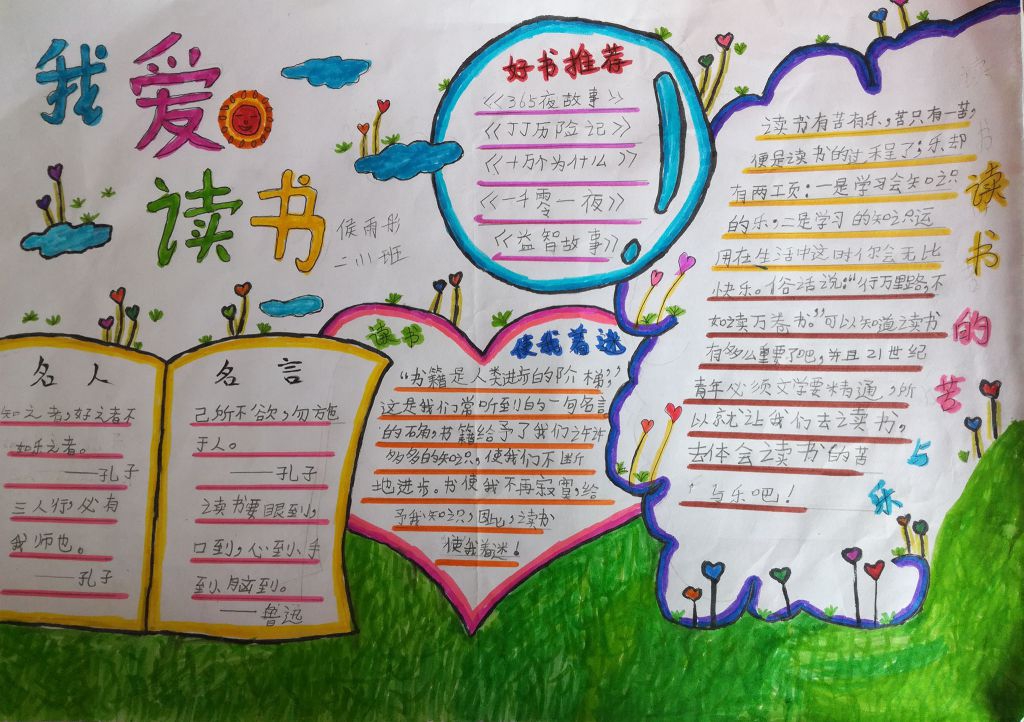 我 爱
读 书
侯雨彤
二小班
好书推荐
《365夜故事》
《丁丁历险记》
《十万个为什么》
《一千零一夜》
《益智故事》
名人
知之者,好之者不
如乐之者。
——孔子
三人行,必有
我师也。
——孔子
名言
己所不欲,勿施
于人。
——孔子
之读书要眼到,
口到,心到、手
到、脑到。
——鲁迅
读书 使我着迷
“书籍是人类进步的阶梯”,
这是我们常听到的一句名言
的确,书籍给予了我们许许
多多的知识,使我们不断
地进步。书使我不再寂寞,给
予我知识,因此,读书
使我着迷!
读书的苦与乐
读书有苦有乐,苦只有一苦,
便是读书的过程了;乐却
有两工页:一是学习会知识
的乐;二是学习的知识运
用在生活中这时你会无比
快乐。俗话说:“行万里路,不
如读万卷书。”可以知道读书
有多么重要了吧,并且21世纪
青年必须文学要精通,所
以就让我们去读书,
去体会读书的苦
与乐吧!